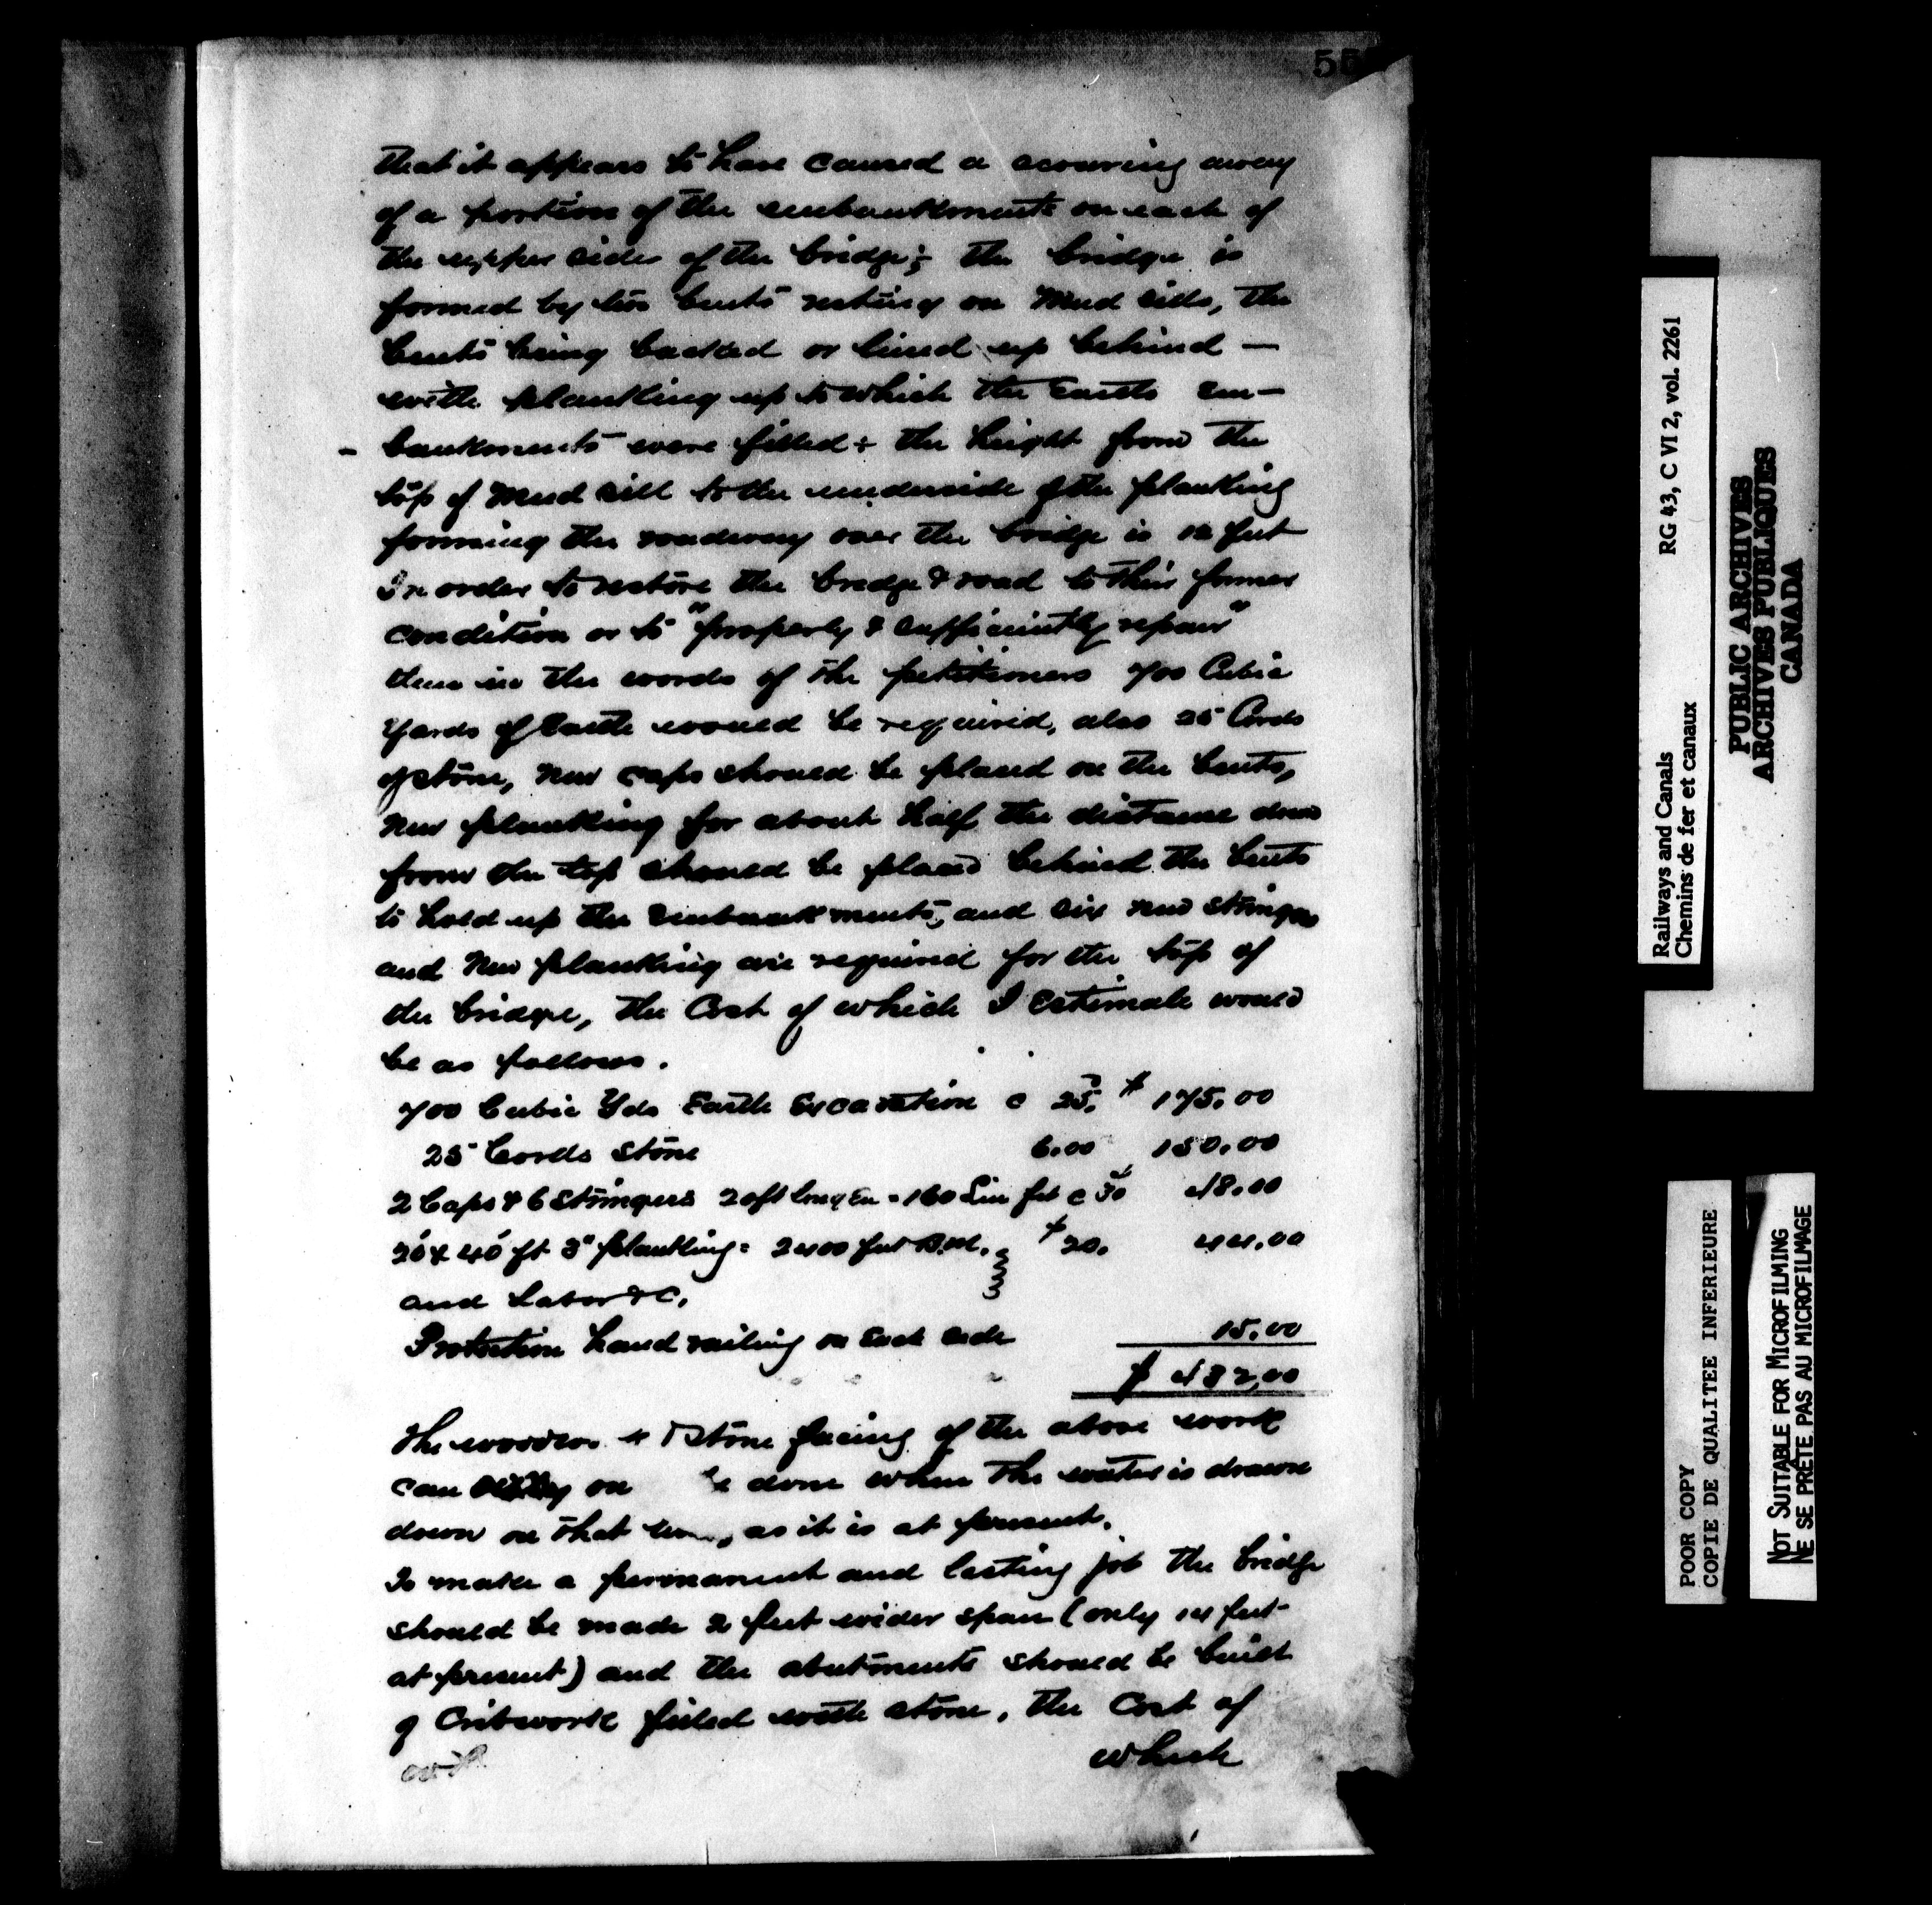 55
that it appears to have caused a scouring away
of a portion of the embankments on each of
the upper sides of the bridge; the bridge is
formed by two bents resting on Mud sills, the
bents being backed or lined up behind —
with plankling up to which the Earth Em-
bankments were filled & the height from the
top of Mud sill to the underside of the planking
forming the roadway over the bridge is 12 feet
In order to restore the bridge & road to their former
condition or to "properly & sufficiently repair"
them in the words of the petitioners 700 Cubic
Yards of Earth would be required, also 25 Cords
of stone, new caps should be placed on the bents,
new planking for about half the distance down
from the top should be placed behind the bents
to hold up the Embankments, and six new stringers
and new planking are required for the top of
the bridge, the Cost of which I estimate would
be as follows.
700 Cubic Yds Earth Excavation @ 25. $ 175.00
25 Cords Stone 6.00 150.00
2 Caps & 6 Stringers 20 ft long Ea = 160 Lin feet @ 30 48.00
20 x 40 ft 3" planking = 2400 feet B.M. $ 20. 44.00
and Labor &c.
Protection hand railing on Each side 15.00
$ 432.00
The wooden & Stone facing of the above work
can on be done when the water is drawn
down on that as it is at present.
To make a permanent and lasting job the bridge
should be made 2 feet wider span (only 14 feet
at present) and the abutments should be built
of Cribwork filled with stone, the Cost of
which
Railways and Canals RG 43, C VI 2, vol. 2261
Chemins de fer et canaux
PUBLIC ARCHIVES
ARCHIVES PUBLIQUES
CANADA
POOR COPY
COPIE DE QUALITEE INFERIEURE
NOT SUITABLE FOR MICROFILMING
NE SE PRÊTE PAS AU MICROFILMAGE